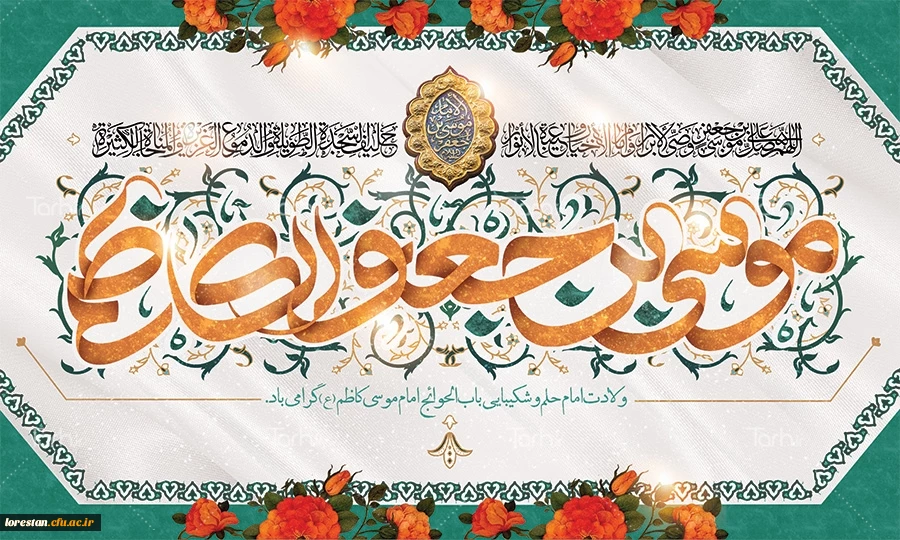 اللهم صل علی موسی بن جعفر وصی الابرار و امام الاخیار و عیبة الانوار
الامام موسی بن جعفر
حلیف السجدة الطویلة و الدموع الغزیرة و المناجاة الکثیرة
موسی بن جعفر الکاظم
ولادت امام حلم و شکیبایی باب الحوائج امام موسی کاظم (ع) گرامی باد.
lorestan.cfu.ac.ir